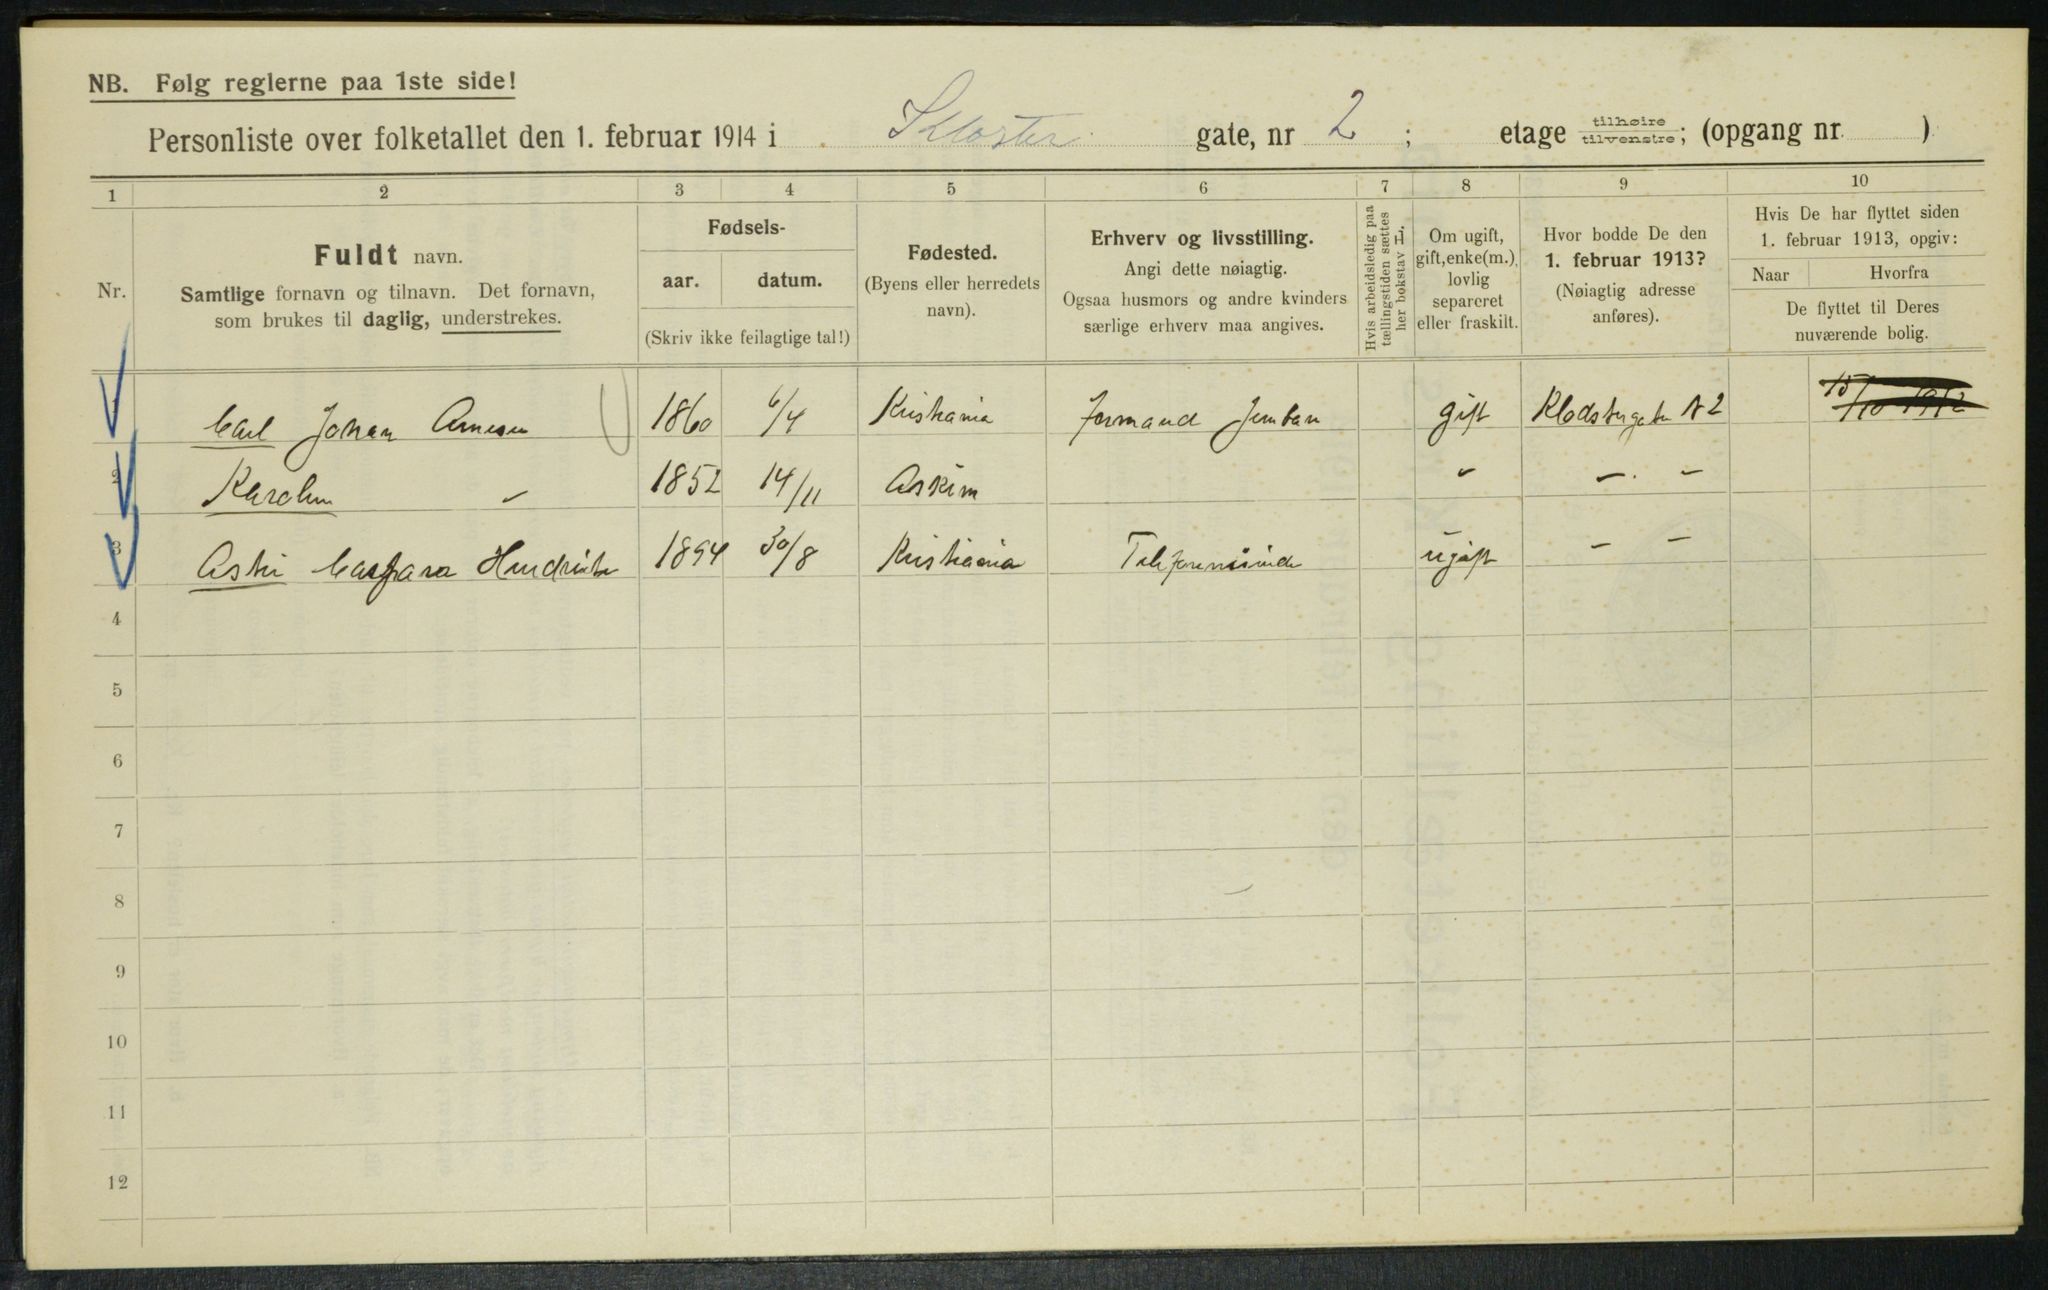 NB. Følg reglerne paa 1ste side!
Personliste over folketallet den 1. februar 1914 i Kloster gate, nr 2; etage tilhøire/tilvenstre; (opgang nr. )
1 2 3 4 5 6 7 8 9 10
Nr.
Fuldt navn.
Samtlige fornavn og tilnavn. Det fornavn,
som brukes til daglig, understrekes.
Fødsels-
aar. datum.
(Skriv ikke feilagtige tal!)
Fødested.
(Byens eller herredets
navn).
Erhverv og livsstilling.
Angi dette nøiagtig.
Ogsaa husmors og andre kvinders
særlige erhverv maa angives.
Hvis arbeidsledig paa
tællingstiden sættes
her bokstav H.
Om ugift,
gift, enke(m.),
lovlig
separeret
eller fraskilt.
Hvor bodde De den
1. februar 1913?
(Nøiagtig adresse
anføres).
Hvis De har flyttet siden
1. februar 1913, opgiv:
Naar Hvorfra
De flyttet til Deres
nuværende bolig.
1 Carl Johan Arnesen 1860 6/4 Kristiania formand Jernban gift Klodstergaten N 2 15/10 1912
2 Karolin " 1852 14/11 Askim " - -
3 Caspara 1894 30/8 Kristiania ugift - -
4
5
6
7
8
9
10
11
12